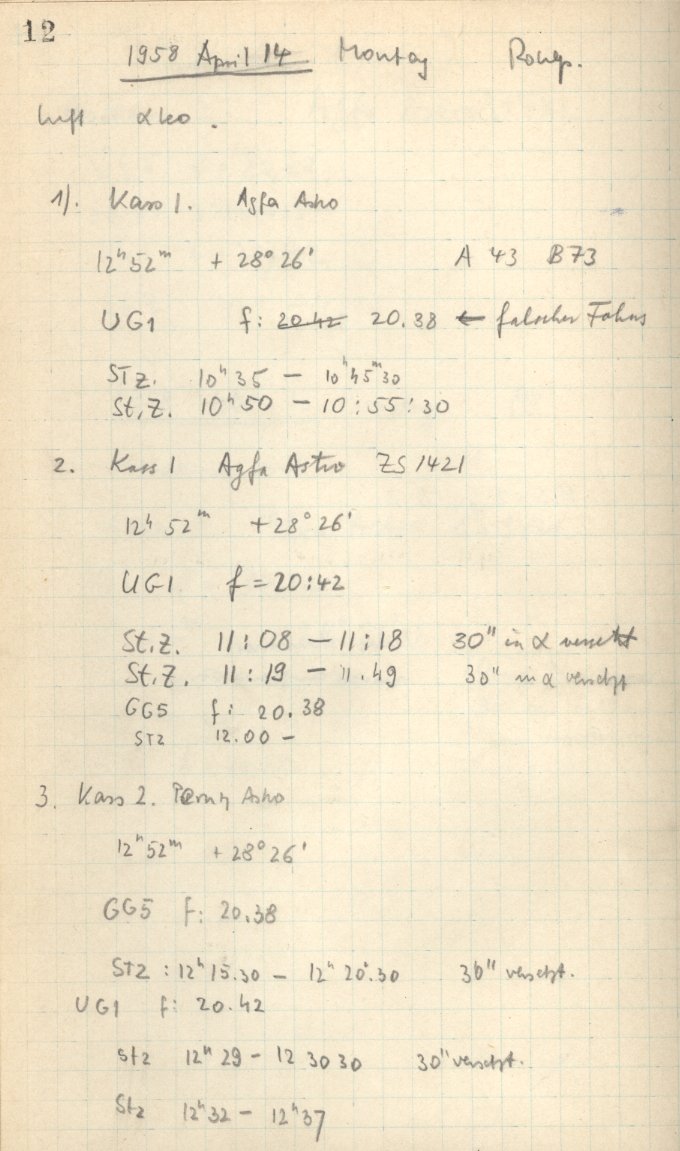 12
1958 April 14 Montag
Luft
1). Kass 1. Agfa Astro
12h 52m + 28° 26' A 43 B 73
UG1 f: 20.42 20.38 ← falscher Fokus
STZ. 10h 35 — 10h 45m 30
St.Z. 10h 50 — 10:55:30
2. Kass 1 Agfa Astro ZS 1421
12h 52m +28° 26'
UG1 f = 20:42
St.Z. 11:08 — 11:18 30" in α versetzt
St.Z. 11:19 — 11.49 30" in α versetzt
GG5 f: 20.38
STZ 12.00 —
3. Kass 2. Astro
12h 52m + 28° 26'
GG5 f: 20.38
STZ : 12h 15.30 — 12h 20.30 30" versetzt.
UG1 f: 20.42
Stz 12h 29 — 12 30 30 30" versetzt.
Stz 12h 32 — 12h 37